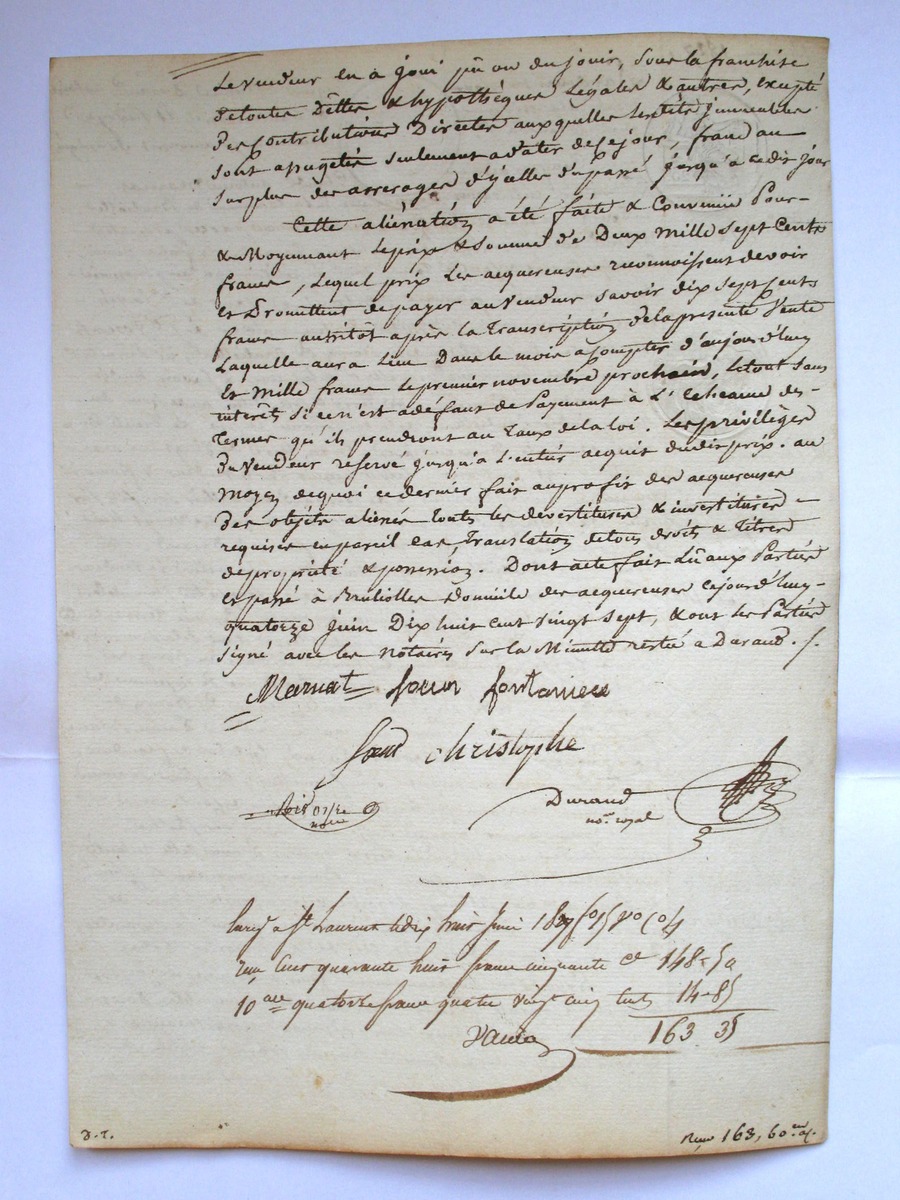 Le vendeur en a joui pû ou du jouir, sous la franchise
detoutes dettes & hypothèques Légales & autres, excepté
Des Contributions Directes auxquelles lesdits jmmeubles
sont assugetis seulement adater decejour, franc au
surplus des arrerages d'jcelles du passé jusqu'a cedit jour
Cette aliénation a été faite & Convenüe Pour
& Moyennant Leprix & Somme de Deux Mille Sept Cents
francs, Lequel prix Les acquereuses reconnoissent devoir
Et Promettent depayer au Vendeur savoir dix Sept cents
francs aussitôt après la Transcription delapresente Vente
Laquelle aura Lieu Dans le mois a Compter d'aujourd'huy
Et Mille francs Lepremier novembre prochain, Letout sans
intérêts si ce n'est adéfaut de Payement à L'Echeance des
Termes qu'ils prendront au Taux dela loi. Les privilèges
Du Vendeur reservé jusqu'a L'entier acquit dudit prix. au
moyen dequoi ce dernier fait auprofit des acquereuses
Des objets alienés touts les devestitures & investitures
requises en pareil cas, Translation detous droits & titres
depropriété & possession. Dont acte fait Lû aux Parties
Et passé à Brulliolles Domicile des acquereuses cejourd'huy
quatorze juin Dix huit cent vingt Sept, & ont les Parties
signé avec les notaires sur la Minutte restée a Durand. /.
Marnat soeur fontanieu
soeur christophe
Durand
no.re royal
Enreg à St Laurent le dix huit Juin 1827 fo 15 Vo Co 4
reçu Cent quarante huit francs cinquante Ce 148-50
10 eme quatorze francs quatre vingt cinq Cents 14-85
163 35
D. T.
Reçu 163,60